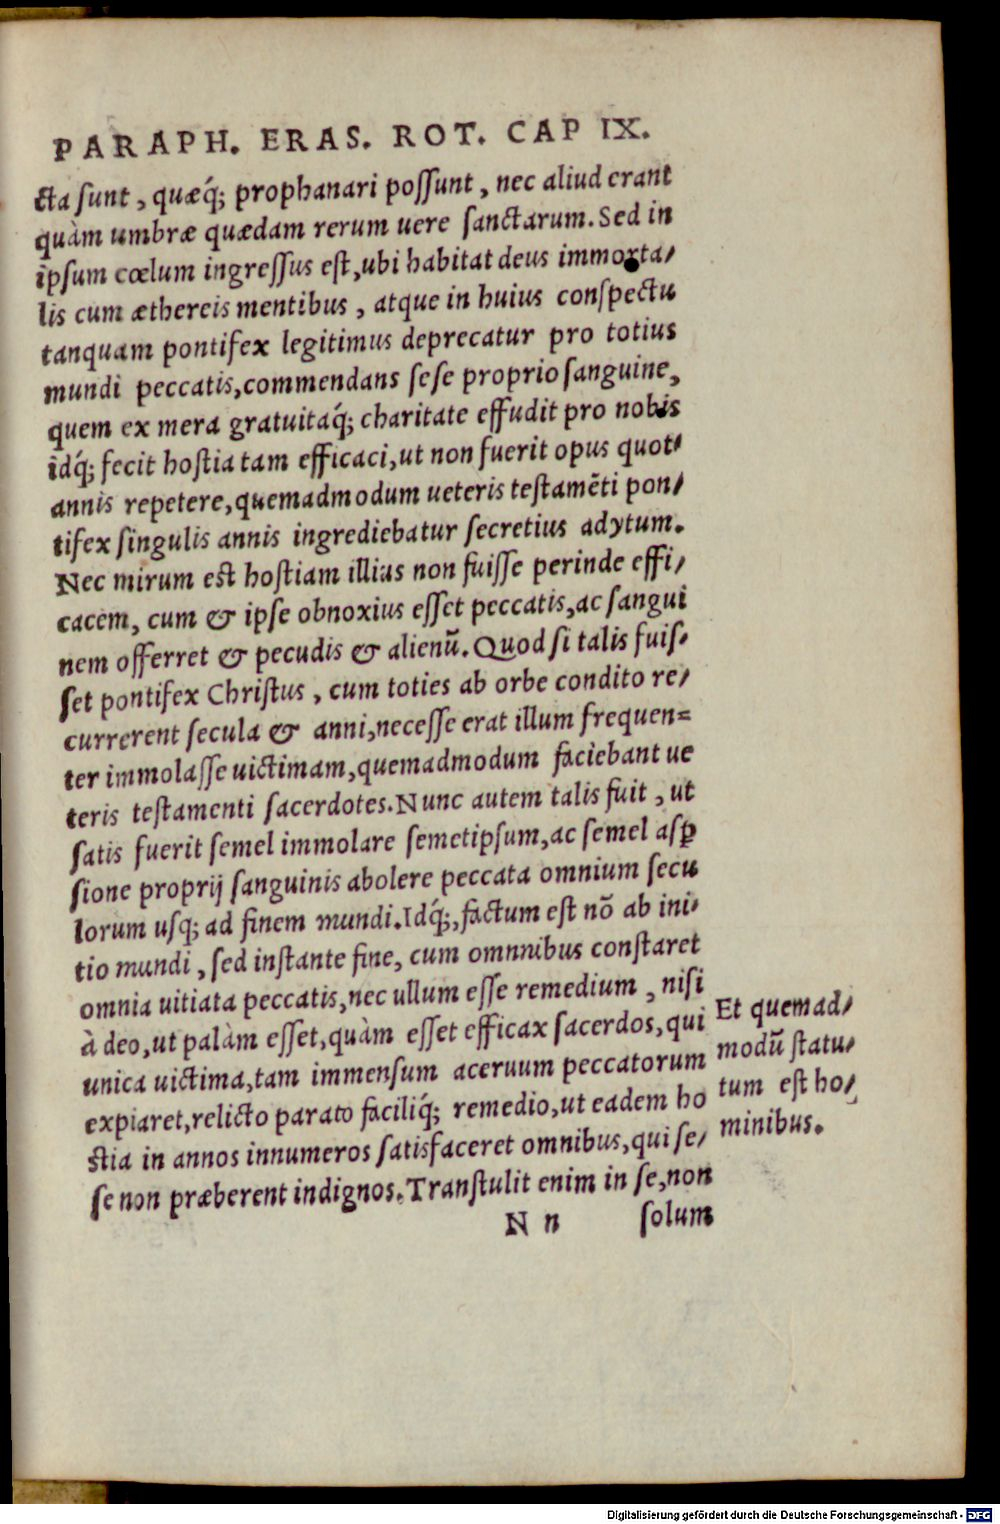 PARAPH. ERAS. ROT. CAP IX.
cta ſunt, quæq́; prophanari poſſunt, nec aliud erant
quàm umbræ quædam rerum uere ſanctarum. Sed in
ipſum cœlum ingreſſus eſt, ubi habitat deus immorta/
lis cum æthereis mentibus, atque in huius conſpectu
tanquam pontifex legitimus deprecatur pro totius
mundi peccatis, commendans ſeſe proprio ſanguine,
quem ex mera gratuitaq́; charitate effudit pro nobis
idq́; fecit hoſtia tam efficaci, ut non fuerit opus quot/
annis repetere, quemadmodum ueteris teſtamẽti pon/
tifex ſingulis annis ingrediebatur ſecretius adytum.
Nec mirum est hoſtiam illius non fuiſſe perinde effi/
cacem, cum & ipſe obnoxius eſſet peccatis, ac ſangui
nem offerret & pecudis & alienũ. Quod ſi talis fuiſ/
ſet pontifex Chriſtus, cum toties ab orbe condito re/
currerent ſecula & anni, neceſſe erat illum frequen=
ter immolaſſe uictimam, quemadmodum faciebant ue
teris teſtamenti ſacerdotes. Nunc autem talis fuit, ut
ſatis fuerit ſemel immolare ſemetipſum, ac ſemel aſꝑ
ſione proprij ſanguinis abolere peccata omnium ſecu
lorum uſq; ad finem mundi. Idq́;, factum eſt nõ ab ini/
tio mundi, ſed inſtante fine, cum omnnibus conſtaret
omnia uitiata peccatis, nec ullum eſſe remedium, niſi
à deo, ut palàm eſſet, quàm eſſet efficax ſacerdos, qui
unica uictima, tam immenſum aceruum peccatorum
expiaret, relicto parato faciliq́; remedio, ut eadem ho
ſtia in annos innumeros ſatisfaceret omnibus, qui ſe/
ſe non præberent indignos. Tranſtulit enim in ſe, non
Et quemad/
modũ ſtatu/
tum eſt ho/
minibus.
N n ſolum
Digitalisierung gefördert durch die Deutsche Forschungsgemeinschaft - DFG